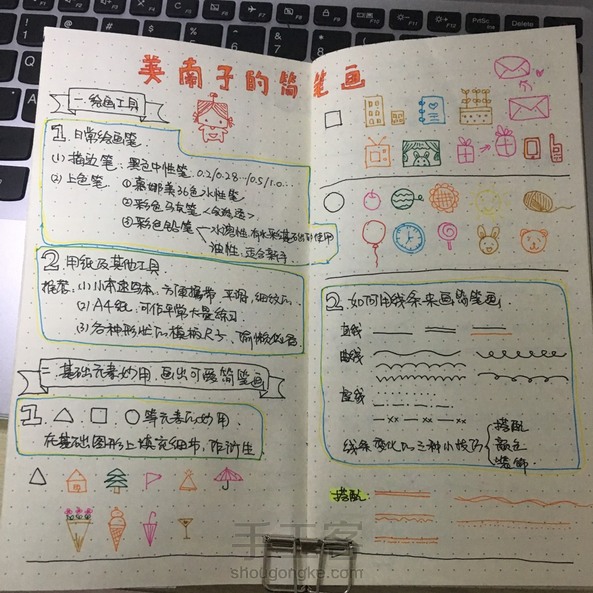 美南子的简笔画
一.绘画工具
1. 日常绘画笔
(1) 描边笔: 黑色中性笔 0.2/0.28…/0.5/1.0…
(2) 上色笔 ①慕娜美36色水性笔
②彩色马克笔
③彩色铅笔 水溶性:有水彩基础的使用
油性:适合新手
2. 用纸及其他工具
推荐: (1)小本速写本,方便携带
(2) A4纸: 可作平常大量练习
(3) 各种形状的模板尺子,
二.基础元素妙用,画出可爱简笔画
1. △ □ ○等元素的妙用
在基础图形上填充细节,
2. 如何用线条来画简笔画
直线
曲线
虚线
线条变化的三种小技巧
搭配
颜色
装饰
搭配
手工客
shougongke.com
Delete
PrtSc